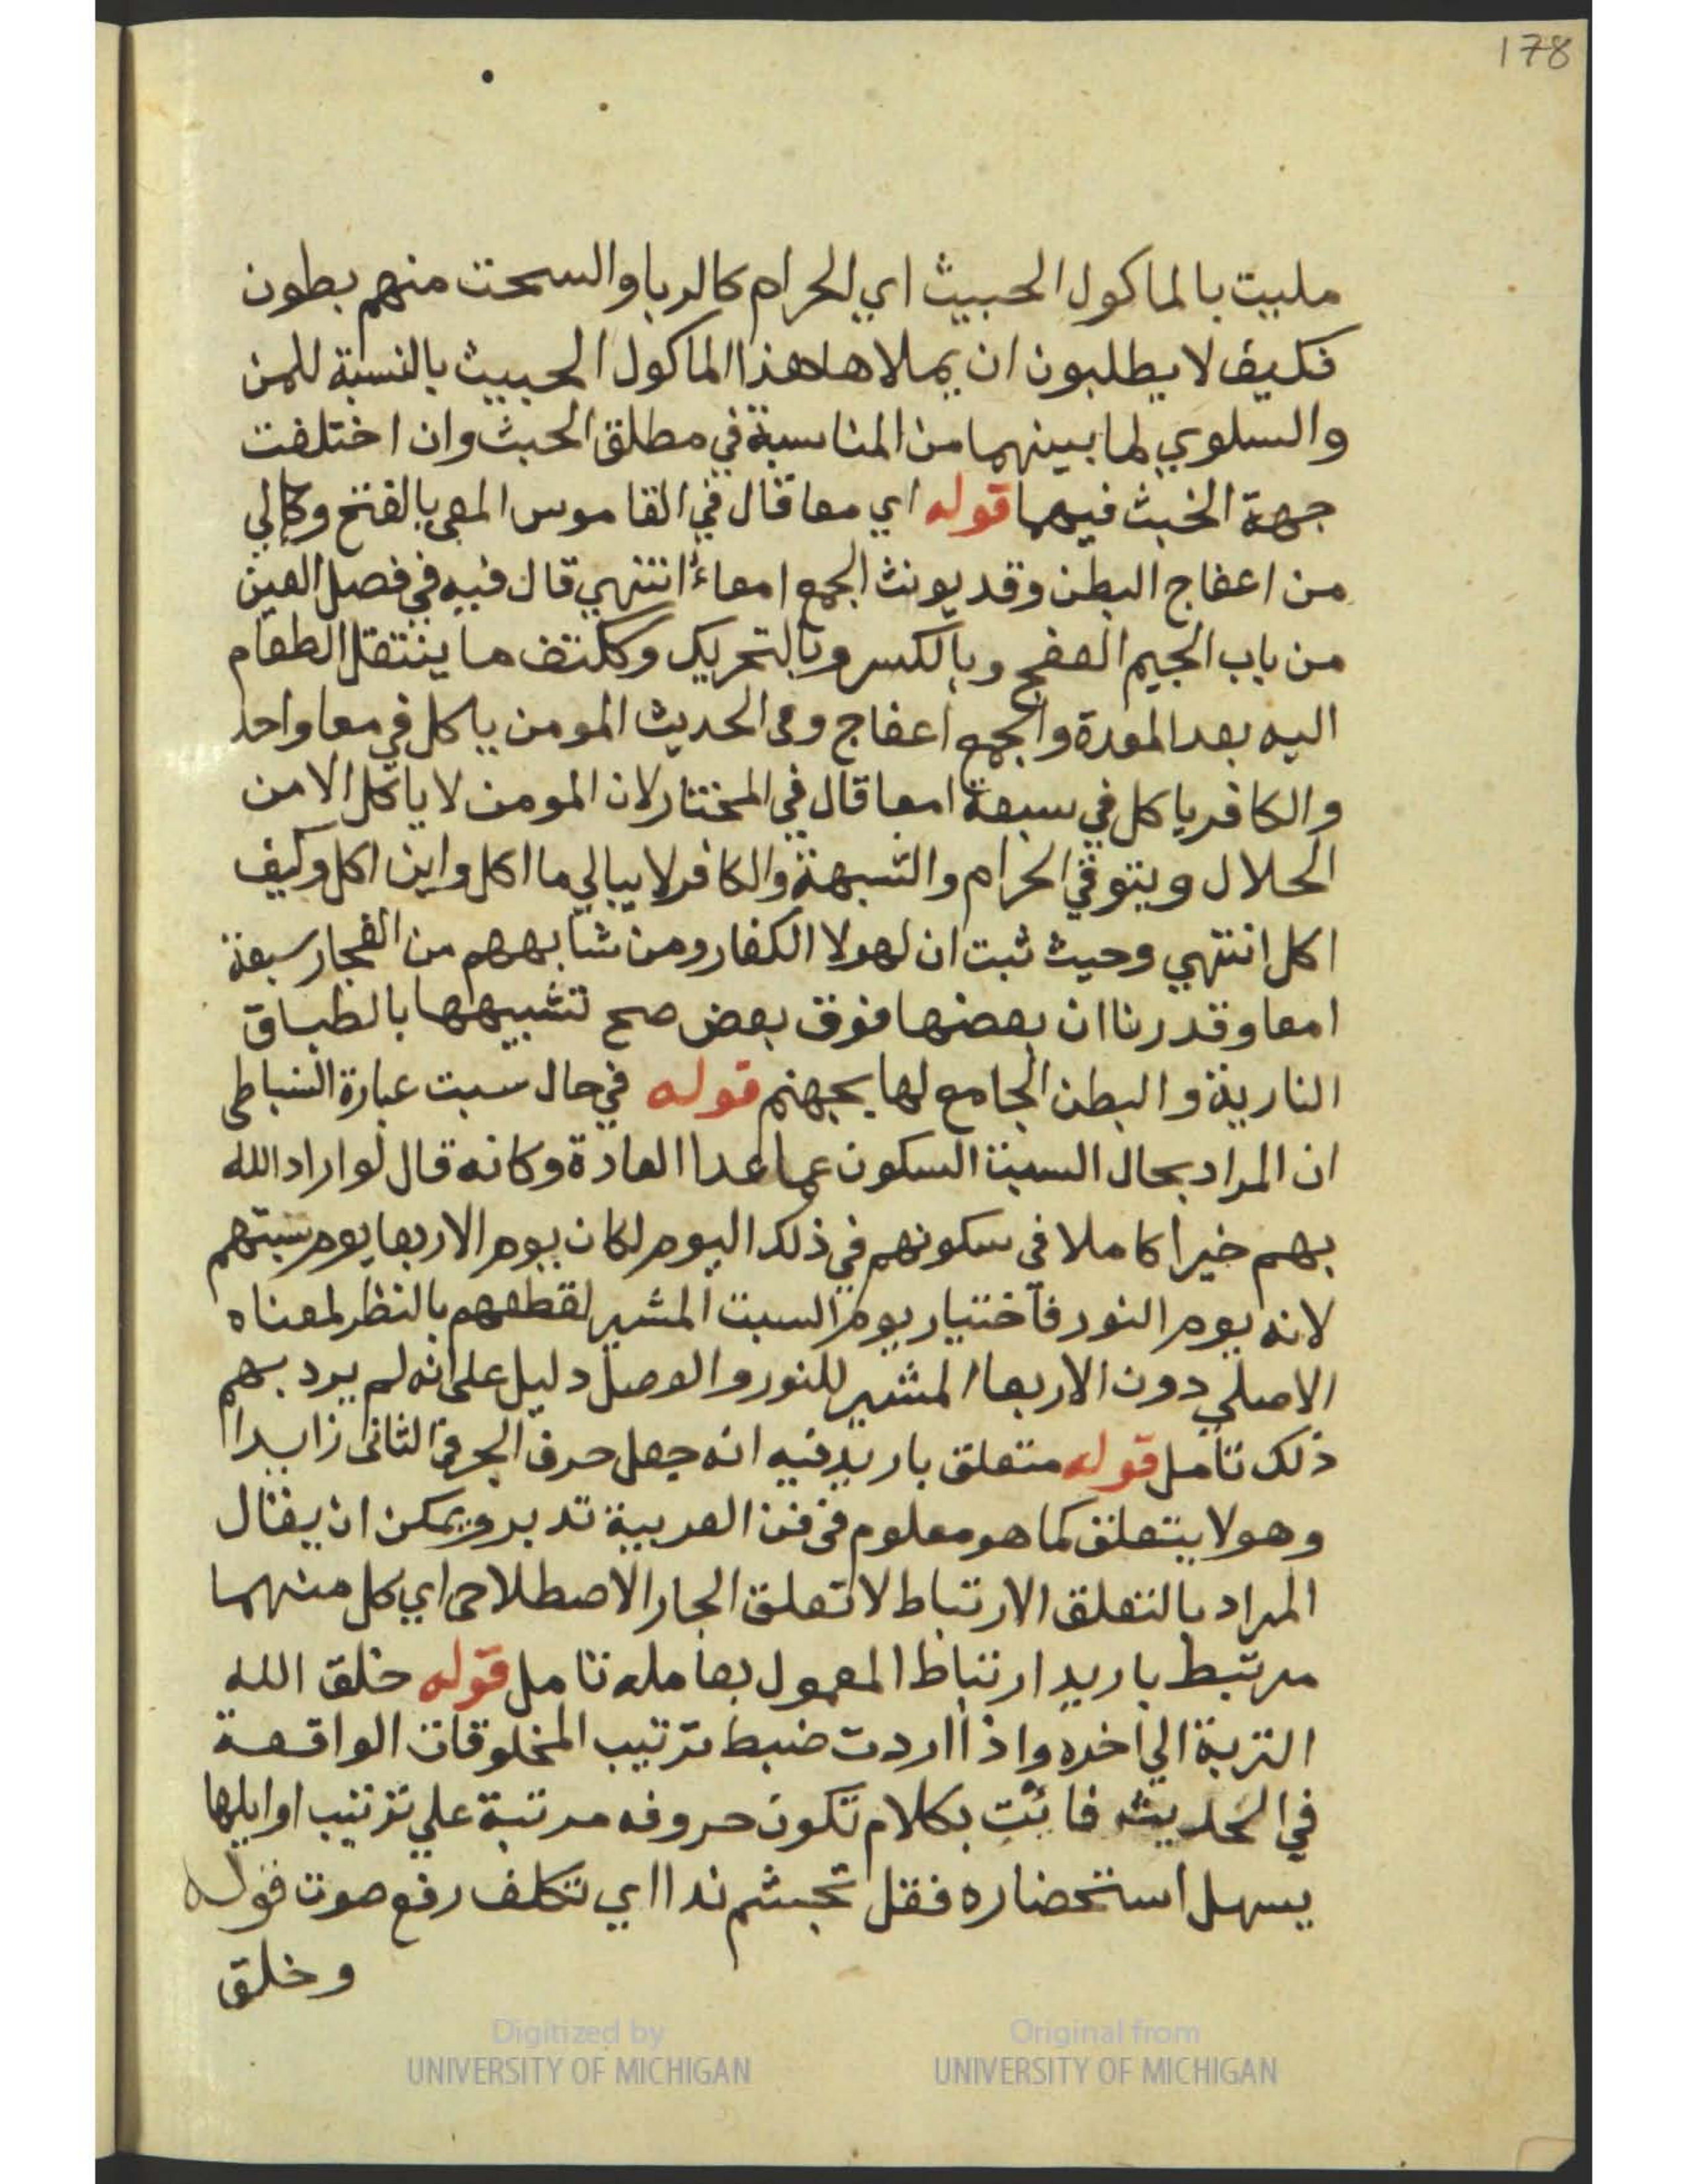 178
مليت بالماكول الحبيث اي الحرام كالربا والسحت منهم بطون
فكيف لا يطلبون ان يملاها هذا الماكول الحبيث بالنسبة للمن
والسلوي لما بينهما من المناسبة في مطلق الحبث وان اختلفت
جهة الخبث فيهما قوله اي معا قال في القاموس المعي بالفتح وكالي
من اعفاج البطن وقد يونث الجمع امعاء انتهي قال فيه في فصل العين
من باب الجيم العفج وبالكسر وبالتحريك وككتف ما ينتقل الطعام
اليه بعد المعدة والجمع اعفاج وفى الحديث المومن ياكل في معا واحد
والكافر ياكل في سبعة امعا قال في المختار لان المومن لا ياكل الا من
الحلال ويتوقي الحرام والشبهة والكافر لا يبالي ما اكل واين اكل وكيف
اكل انتهي وحيث ثبت ان لهولا الكفار ومن شابههم من الفجار سبعة
امعا وقدرنا ان بعضها فوق بعض صح تشبيهها بالطباق
النارية والبطن الجامع لها بجهنم قوله في حال سبت عبارة النباطي
ان المراد بحال السبت السكون عما عدا العادة وكانه قال لو اراد الله
بهم خيرا كاملا فى سكونهم في ذلك اليوم لكان يوم الاربعا يوم سبتهم
لانه يوم النور فاختيار يوم السبت المشير لقطعهم بالنظر لمعناه
الاصلي دون الاربعا المشير للنور والوصل دليل على انه لم يرد بهم
ذلك تامل قوله متعلق باريد فيه انه جعل حرف الجر فى الثانى زايدا
وهو لا يتعلق كما هو معلوم فى فن العربية تدبر ويمكن ان يقال
المراد بالتعلق الارتباط لا تعلق الجار الاصطلاحى اي كل منهما
مرتبط باريد ارتباط المعمول بعامله تامل قوله خلق الله
التربة الي اخره واذا اردت ضبط ترتيب المخلوقات الواقعة
في الحديث فائت بكلام تكون حروفه مرتبة علي ترتيب اوايلها
يسهل استحضاره فقل تجشم ندا اي تكلف رفع صوت قوله
وخلق
Digitized by UNIVERSITY OF MICHIGAN
Original from UNIVERSITY OF MICHIGAN